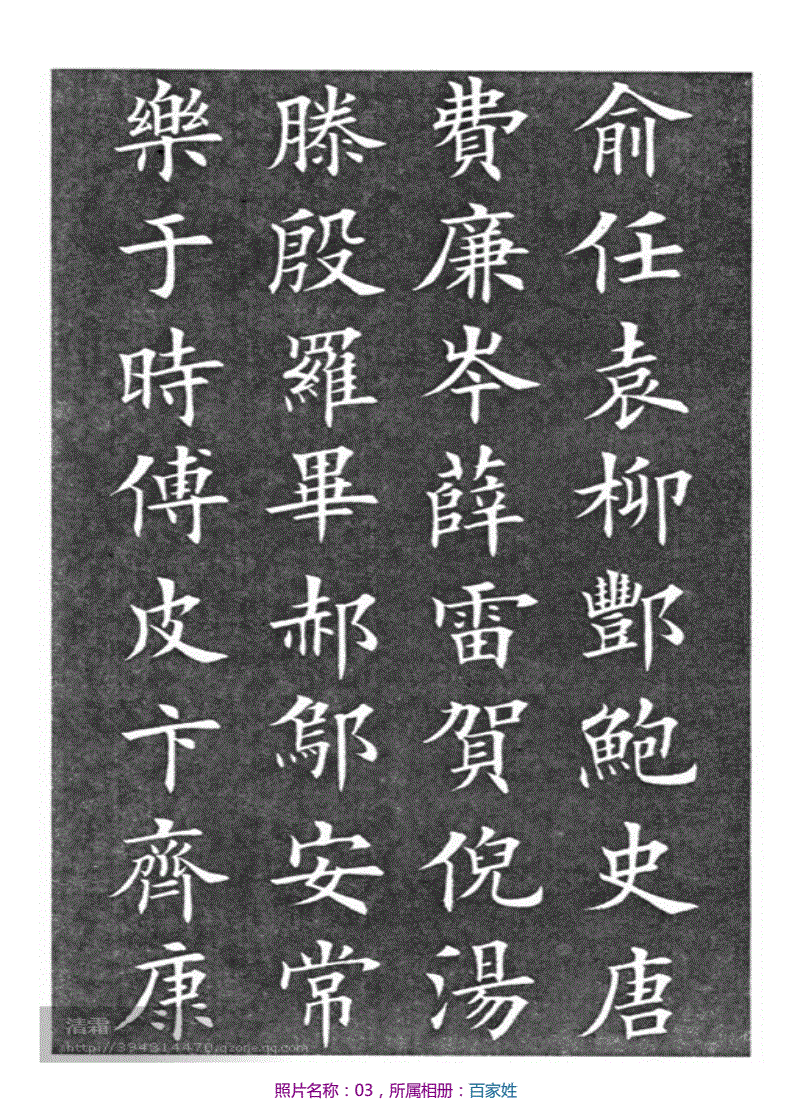 俞任袁柳酆鮑史唐
費廉岑薛雷賀倪湯
滕殷羅畢郝鄔安常
樂于時傅皮卞齊康
清霜
http://394314470.qzone.qq.com
照片名称：03，所属相册：百家姓